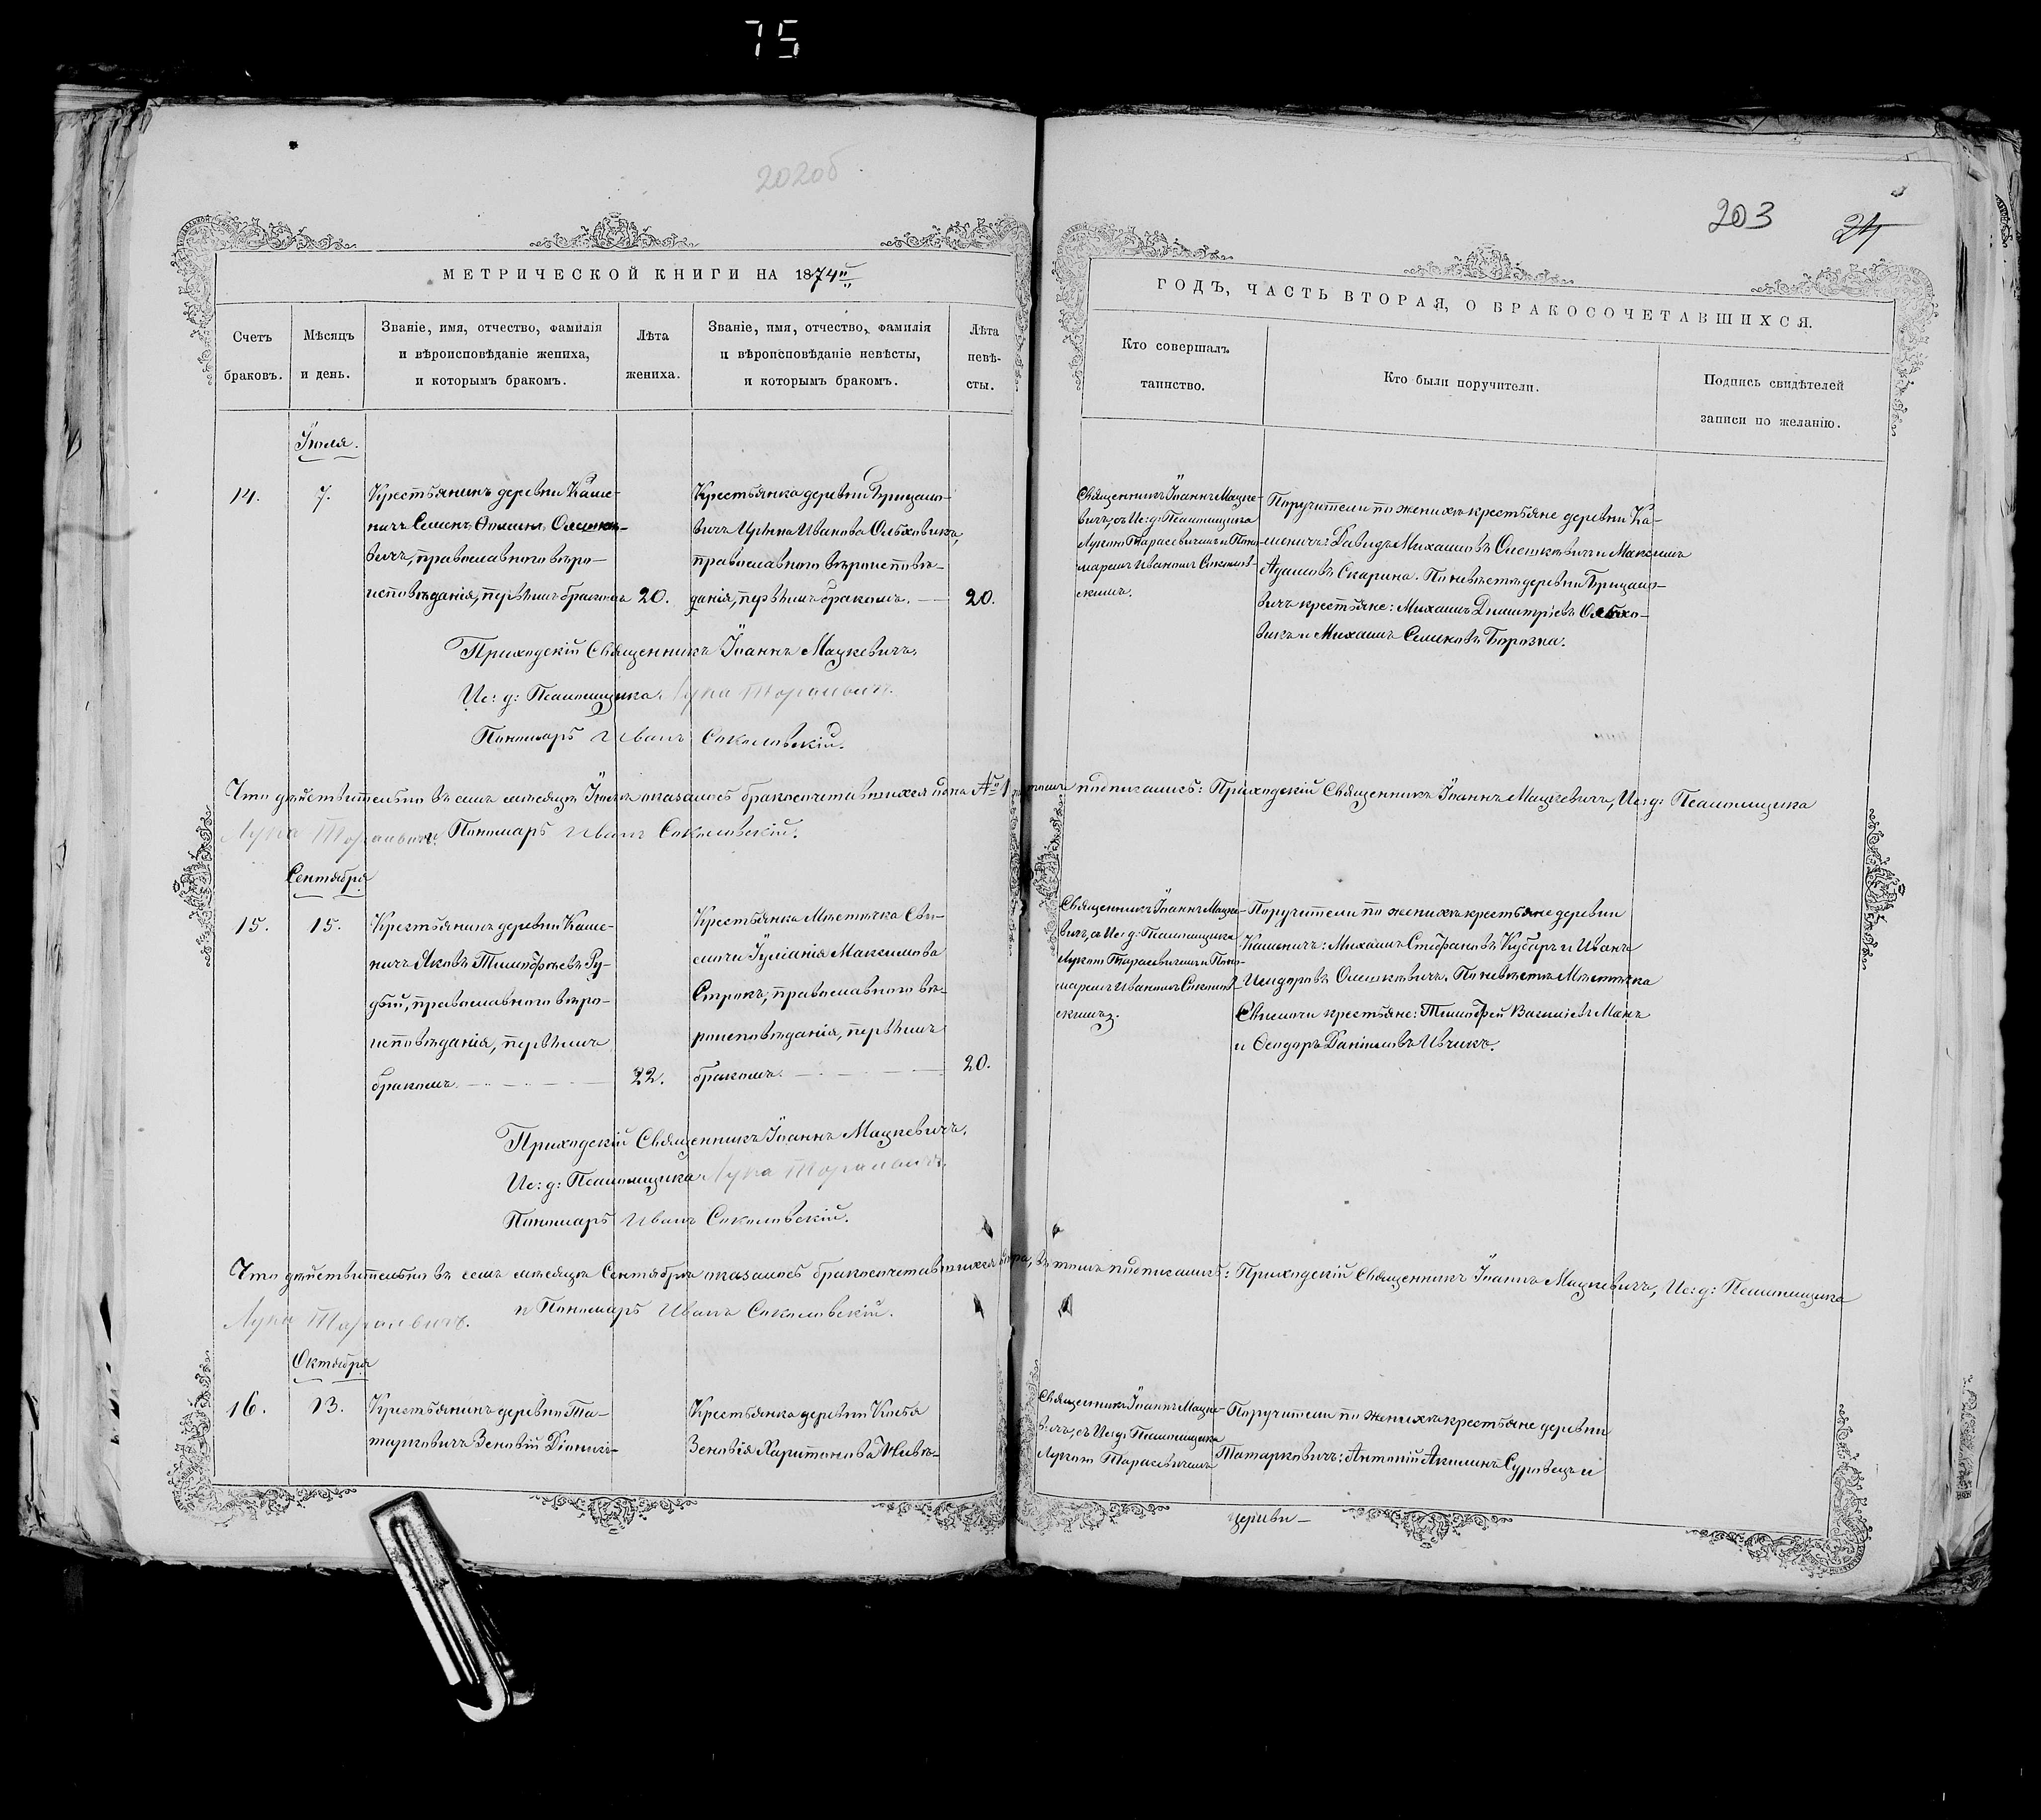 75
202об
203
24
МЕТРИЧЕСКОЙ КНИГИ НА 1874й
ГОДЪ, ЧАСТЬ ВТОРАЯ, О БРАКОСОЧЕТАВШИХСЯ.
Счетъ
браковъ.
Мѣсяцъ
и день.
Званіе, имя, отчество, фамилія
и вѣроисповѣданіе жениха,
и которымъ бракомъ.
Лѣта
жениха.
Званіе, имя, отчество, фамилія
и вѣроисповѣданіе невѣсты,
и которымъ бракомъ.
Лѣта
невѣ-
сты.
Кто совершалъ
таинство.
Кто были поручители.
Подпись свидѣтелей
записи по желанію.
Іюля.
14.
7.
Крестьянинъ деревни Каше-
ничъ Семенъ Ѳоминъ Олешке-
вичъ, православнаго вѣро-
исповѣданія, первымъ бракомъ
20.
Крестьянка деревни Брицало-
вичъ Ирина Иванова Ольховикъ,
православнаго вѣроисповѣ-
данія, первымъ бракомъ.
20.
Священникъ Іоаннъ Мацке-
вичъ, съ Ис: д: Псаломщика
Лукою Тарасевичемъ и Поно-
маремъ Иваномъ Соколов-
скимъ.
Поручители по женихѣ крестьяне деревни Ка-
шеничъ: Давидъ Михаиловъ Олешкевичъ и Максимъ
Адамовъ Скарина. По невѣстѣ деревни Брицало-
вичъ крестьяне: Михаилъ Димитріевъ Ольхо-
викъ и Михаилъ Семеновъ Борозна.
Приходскій Священникъ Іоаннъ Мацкевичъ.
Ис: д: Псаломщика Лука Торасевичъ.
Пономарь Иванъ Соколовскій.
Что дѣйствительно въ семъ мѣсяцѣ Іюлѣ оказалось бракосочетавшихся пара №1 въ томъ подписались: Приходскій Священникъ Іоаннъ Мацкевичъ, Ис: д: Псаломщика
Лука Торасевичъ. Пономарь Иванъ Соколовскій.
Сентября
15.
15.
Крестьянинъ деревни Каше-
ничъ Яковъ Тимоѳеевъ Ру-
дый, православнаго вѣро-
исповѣданія, первымъ
бракомъ.
22.
Крестьянка Мѣстечка Сви-
слочи Іуліанія Максимова
Строкъ, православнаго вѣ-
роисповѣданія, первымъ
бракомъ.
20.
Священникъ Іоаннъ Мацке-
вичъ, съ Ис: д: Псаломщика
Лукою Тарасевичемъ и Поно-
маремъ Иваномъ Соколов-
скимъ.
Поручители по женихѣ крестьяне деревни
Кашеничъ: Михаилъ Стефановъ Кубаръ и Иванъ
Исидоровъ Олешкевичъ. По невѣстѣ Мѣстечка
Свислочи крестьяне: Тимоѳей Василіевъ Макъ
и Ѳеодоръ Даніиловъ Ивчикъ.
Приходскій Священникъ Іоаннъ Мацкевичъ.
Ис: д: Псаломщика Лука Торасевичъ.
Пономарь Иванъ Соколовскій.
Что дѣйствительно въ семъ мѣсяцѣ Сентябрѣ оказалось бракосочетавшихся пара, въ томъ подписались: Приходскій Священникъ Іоаннъ Мацкевичъ, Ис: д: Псаломщика
Лука Тарасевичъ. и Пономарь Иванъ Соколовскій.
Октября
16.
13.
Крестьянинъ деревни Та-
тарковичъ Зеновій Діонисі-
Крестьянка деревни Косья
Зеновія Харитонова Живѣ-
Священникъ Іоаннъ Мацке-
вичъ, съ Ис: д: Псаломщика
Лукою Тарасевичемъ
Поручители по женихѣ крестьяне деревни
Татарковичъ: Антоній Акилинъ Суровецъ и
церкви